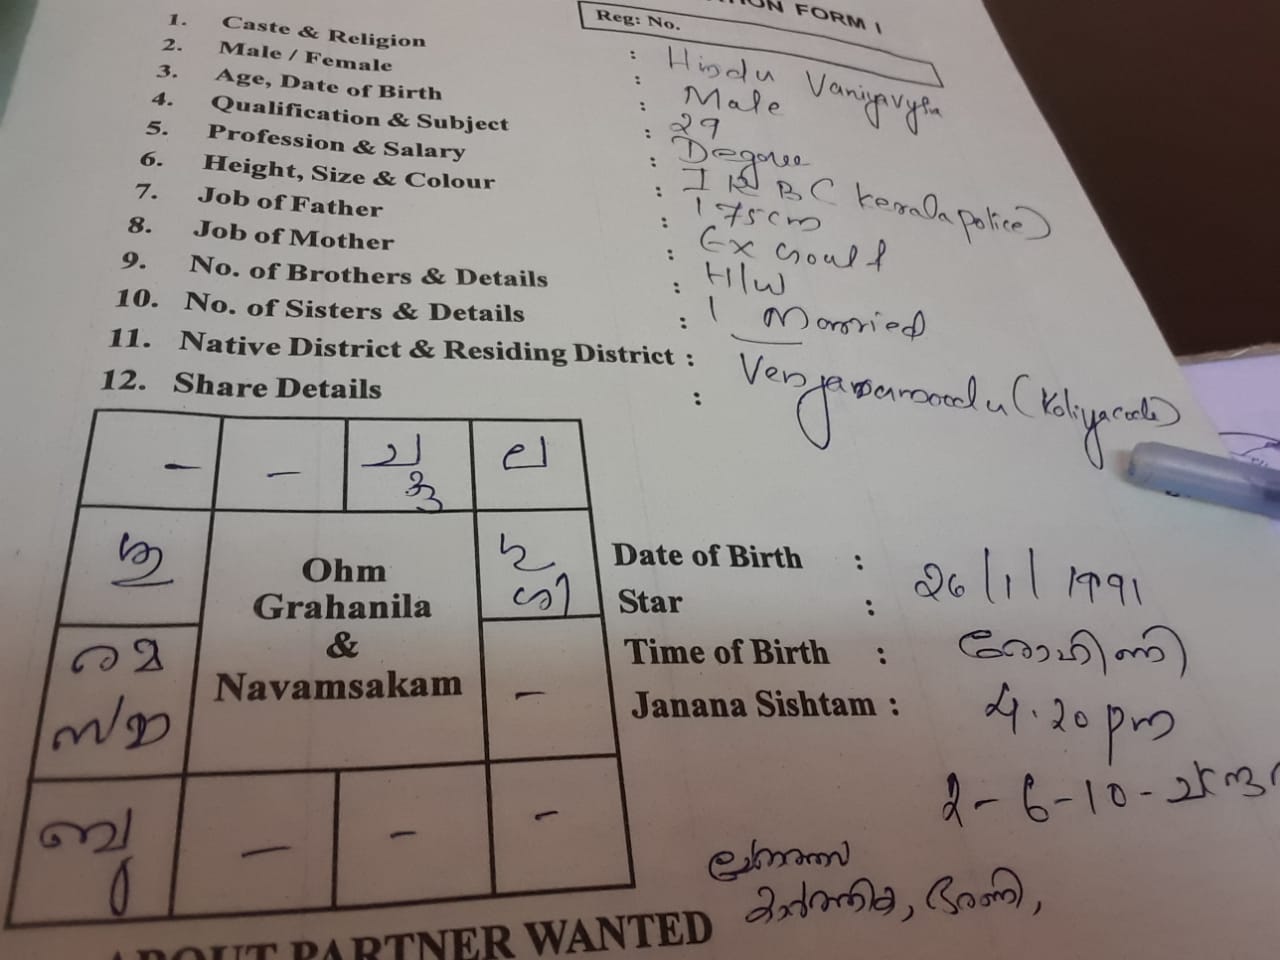 TION FORM I
Reg: No.
1. Caste & Religion : Hindu Vaniyavysia
2. Male / Female : Male
3. Age, Date of Birth : 29
4. Qualification & Subject : Degree
5. Profession & Salary : I R B C Kerala police)
6. Height, Size & Colour : 175cm
7. Job of Father : Ex Goulf
8. Job of Mother : H/W
9. No. of Brothers & Details : 1 Married
10. No. of Sisters & Details : —
11. Native District & Residing District : Venjaramoodu (Koliyacode)
12. Share Details :
- - ച ല
ശു
Ohm
Grahanila
&
Navamsakam
ബു
- - -
Date of Birth : 26/1/1991
Star : രോഹിണി
Time of Birth : 4.20 pm
Janana Sishtam : 2-6-10-
കാർത്തിക, ഭരണി,
ABOUT PARTNER WANTED